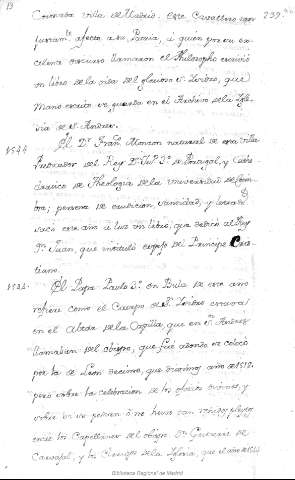 13
239
Coronada villa de Madrid. este Cavallero con
afecto a su Patria, a quien por su ex-
celente discurso llamaron el Philosopho escrivió
un libro de la vida del glorioso S. Isidro, que
manuescrito se guarda en el Archivo de la Igle-
sia de S. Andres.
1544
El Dr. Franco. Monzon natural de esta villa
Predicador del Rey D. 3º de Portugal, y Cathe-
dratico de Theologia de la Universidad de Coim-
bra; persona de erudicion, santidad, y
saco este año a luz un libro, que dedicó al Rey
Dn. Juan, que intituló espejo del Principe Chris-
tiano.
El Papa Paulo 3º en Bula de este año
refiere como el Cuerpo de S. Isidro estava
en el Altar de la Capilla, que en S. Andres
llamaban del obispo, que fue adonde se colocó
por la de Leon decimo, que diximos año de 1518.
pero sobre la celebracion de los oficios divinos, y
sobre
entre los Capellanes del obispo Dn. Gutierre de
Carvajal, y los Clerigos de la Iglesia, que el año de 1544
Biblioteca Regional de Madrid